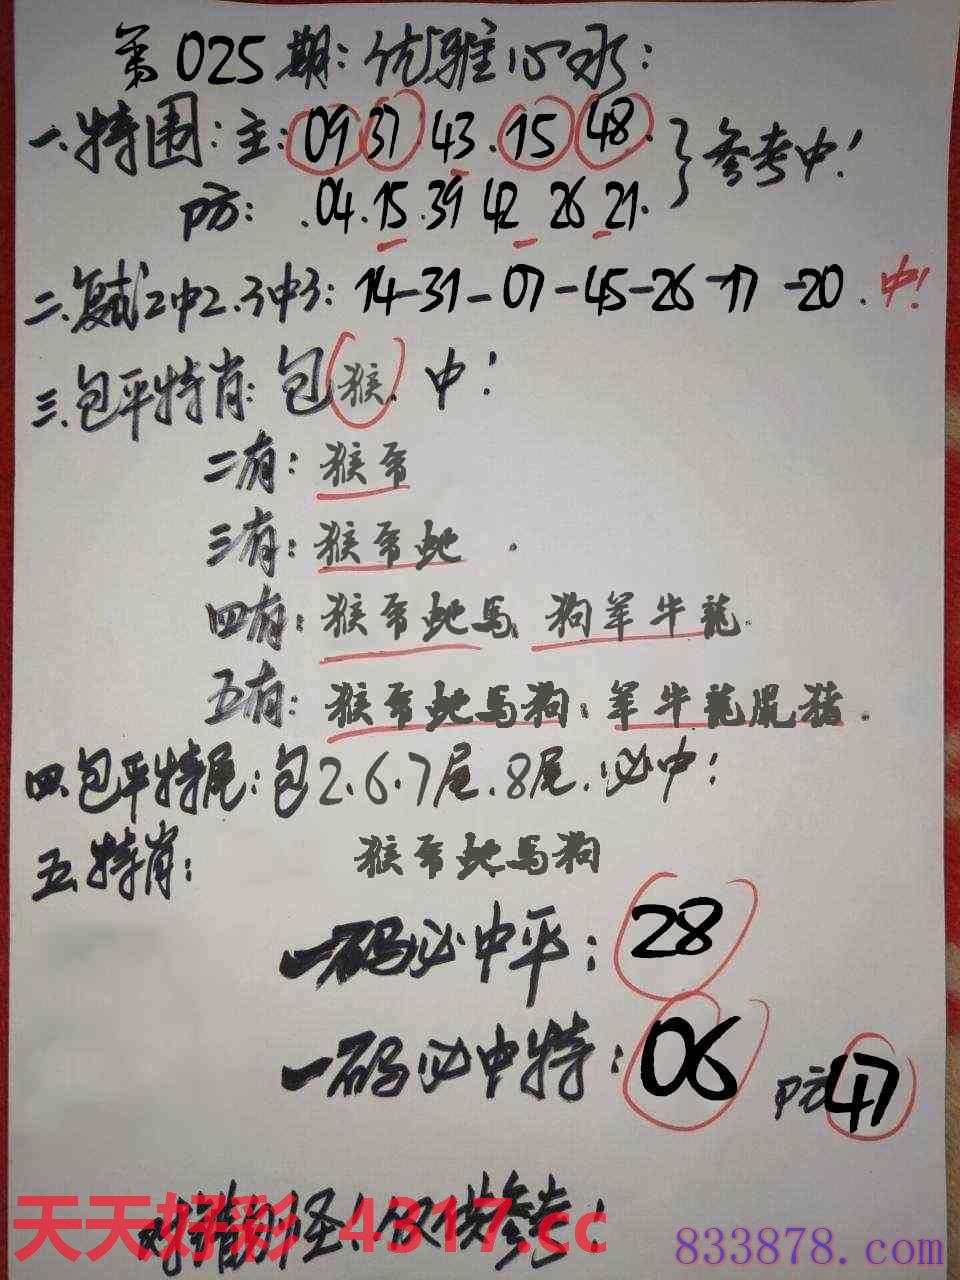 第025期:优雅心水:
一.特围:主:09 37.43.15 48.
防:.04.15.39 42 26 21.
参考中!
二.复试2中2.3中3:14-31-07-45-26-17-20.中!
三.包平特肖:包猴.中!
二有:猴
三有:猴 蛇.
四有:猴 蛇马.狗羊牛龍.
五有:猴 蛇马狗.羊牛龍鼠猪.
四.包平特尾:包2.6.7尾.8尾.必中!
五.特肖:猴 蛇马狗
一码必中平:28
一码必中特:06 防47
对错勿怪!仅供参考!
天天好彩 4317.cc
833878.com